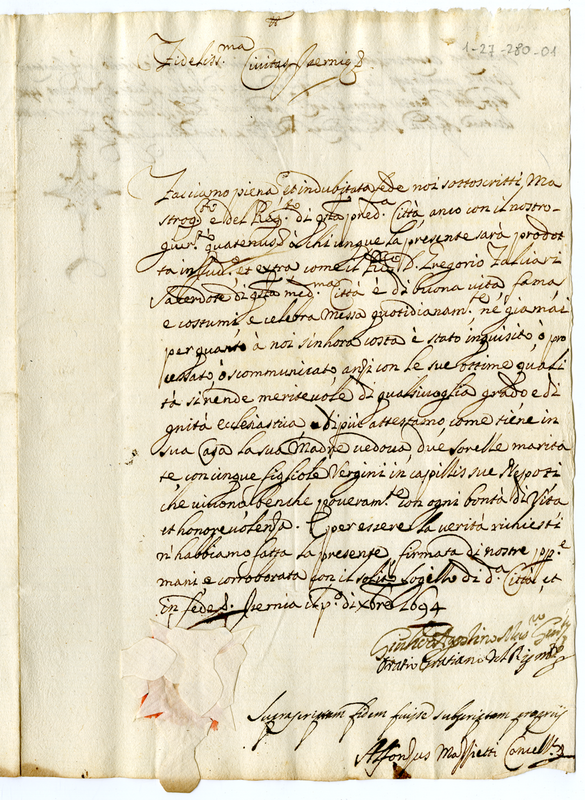 1-27-280-01
Fidelis.ma Civitas Iserniæ
Facciamo piena et indubitata fede noi sottoscritti Ma
strog.to e del Reg.to di q.ta pred.ta Città anco con il nostro
giur.to quatenus à chi unque la presente sarà prodot
ta in Iud.o et extra come il D. Gregorio Falciari
Sacerdote di q.ta med.ma Città è di buona vita fama
e costumi, e celebra messa quotidianam.te né già mai
per quanto à noi sin hora costa è stato inquisito, ò pro
cessato, ò scommunicato anzi con le sue ottime quali
tà si rende meritevole di qualsivoglia grado e di
gnità ecclesiastica, di più attestamo come tiene in
sua Casa la sua Madre vedova due sorelle marita
te con cinque figliole Vergini in capillis sue Neposti
che vivono benche poveram.te con ogni bontà di Vita
et honorevolenza. E per essere la verità richiesti
n'habbiamo fatta la presente firmata di nostre pp.e
mani e corroborata con il solito sogello di d.a Città, et
in fede &. Isernia il p.o di Xbre 1694
Oratio Gratiano del Regim.to
Suprascriptam fidem fuisse subscriptam
Alfonsus Cancell.s